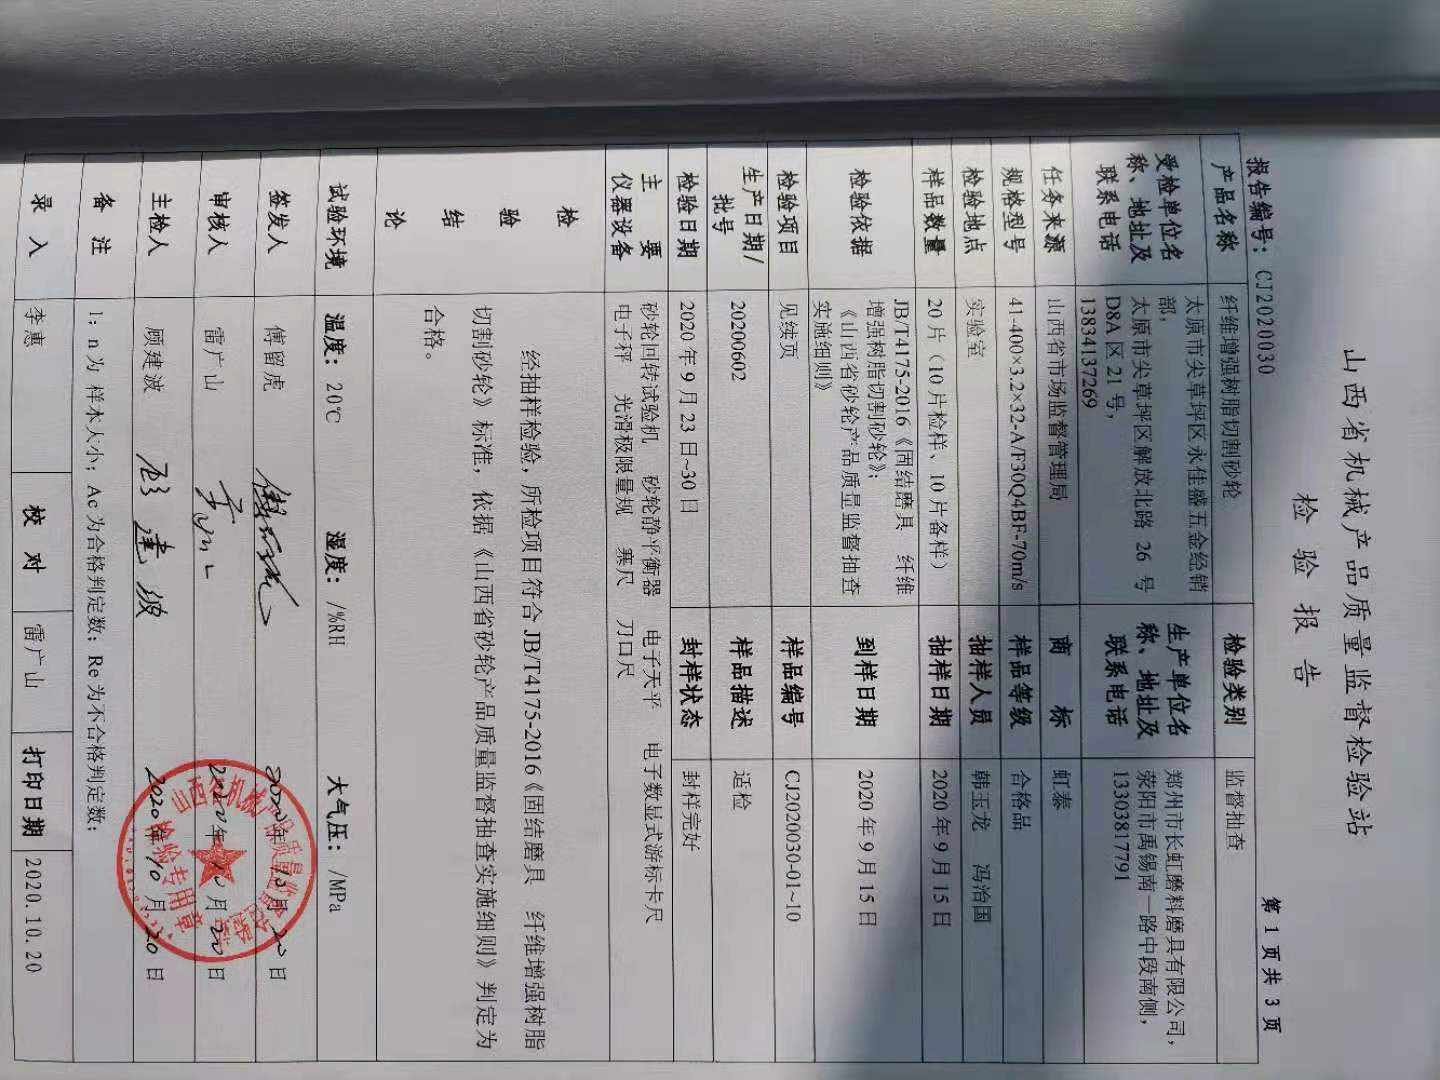 山西省机械产品质量监督检验站
检 验 报 告
报告编号：CJ2020030 第 1 页共 3 页
产品名称 纤维增强树脂切割砂轮 检验类别 监督抽查
受检单位名称、地址及联系电话
太原市尖草坪区永佳盛五金经销部，
太原市尖草坪区解放北路 26 号
D8A 区 21 号，
13834137269
生产单位名称、地址及联系电话
郑州市长虹磨料磨具有限公司，
荥阳市禹锡南一路中段南侧，
13303817791
任务来源 山西省市场监督管理局 商 标 虹泰
规格型号 41-400×3.2×32-A/F30Q4BF-70m/s 样品等级 合格品
检验地点 实验室 抽样人员 韩玉龙 冯治国
样品数量 20 片（10 片检样、10 片备样） 抽样日期 2020 年 9 月 15 日
检验依据
JB/T4175-2016《固结磨具 纤维
增强树脂切割砂轮》；
《山西省砂轮产品质量监督抽查
实施细则》
到样日期 2020 年 9 月 15 日
检验项目 见续页 样品编号 CJ2020030-01~10
生产日期/批号 20200602 样品描述 适检
检验日期 2020 年 9 月 23 日~30 日 封样状态 封样完好
主 要
仪器设备
砂轮回转试验机 砂轮静平衡器 电子天平 电子数显式游标卡尺
电子秤 光滑极限量规 塞尺 刀口尺
检
验
结
论
经抽样检验，所检项目符合 JB/T4175-2016《固结磨具 纤维增强树脂
切割砂轮》标准，依据《山西省砂轮产品质量监督抽查实施细则》判定为
合格。
试验环境 温度：20℃ 湿度：/%RH 大气压：/MPa
签发人 傅留虎 2020 年 10 月 20 日
审核人 雷广山 2020 年 10 月 20 日
主检人 顾建波 顾建波 2020 年 10 月 20 日
检验专用章
备 注 1：n 为 样本大小；Ac 为合格判定数；Re 为不合格判定数；
录 入 李惠 校 对 雷广山 打印日期 2020.10.20